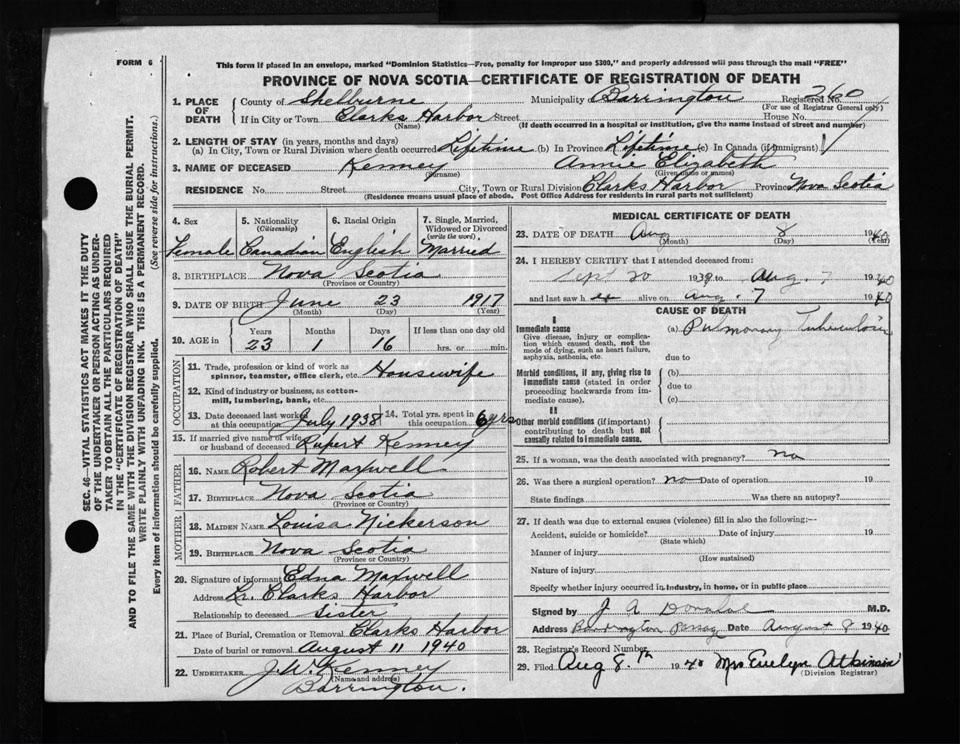 FORM 6
This form if placed in an envelope, marked "Dominion Statistics—Free, penalty for improper use $300," and properly addressed will pass through the mail "FREE"
PROVINCE OF NOVA SCOTIA—CERTIFICATE OF REGISTRATION OF DEATH
SEC. 46—VITAL STATISTICS ACT MAKES IT THE DUTY
OF THE UNDERTAKER OR PERSON ACTING AS UNDER-
TAKER TO OBTAIN ALL THE PARTICULARS REQUIRED
IN THE "CERTIFICATE OF REGISTRATION OF DEATH"
AND TO FILE THE SAME WITH THE DIVISION REGISTRAR WHO SHALL ISSUE THE BURIAL PERMIT.
WRITE PLAINLY WITH UNFADING INK. THIS IS A PERMANENT RECORD.
Every item of information should be carefully supplied. (See reverse side for instructions.)
1. PLACE OF DEATH
County of Shelburne Municipality Barrington Registered No. 260
(For use of Registrar General only)
If in City or Town Clarks Harbor Street House No.
(Name) (If death occurred in a hospital or institution, give the name instead of street and number)
2. LENGTH OF STAY (in years, months and days)
(a) In City, Town or Rural Division where death occurred Lifetime (b) In Province Lifetime (c) In Canada (if immigrant)
3. NAME OF DECEASED Kenney Annie Elizabeth
(Surname) (Given name or names)
RESIDENCE No. Street City, Town or Rural Division Clarks Harbor Province Nova Scotia
(Residence means usual place of abode. Post Office Address for residents in rural parts not sufficient)
4. Sex 5. Nationality (Citizenship) 6. Racial Origin 7. Single, Married, Widowed or Divorced (write the word)
Female Canadian English Married
8. BIRTHPLACE Nova Scotia
(Province or Country)
9. DATE OF BIRTH June 23 1917
(Month) (Day) (Year)
10. AGE in Years Months Days If less than one day old
23 1 16 hrs. or min.
OCCUPATION
11. Trade, profession or kind of work as spinner, teamster, office clerk, etc. Housewife
12. Kind of industry or business, as cotton-mill, lumbering, bank, etc.
13. Date deceased last worked at this occupation July 1938 14. Total yrs. spent in this occupation 6 yrs
15. If married give name of wife or husband of deceased Rupert Kenney
FATHER
16. NAME Robert Maxwell
17. BIRTHPLACE Nova Scotia
(Province or Country)
MOTHER
18. MAIDEN NAME Louisa Nickerson
19. BIRTHPLACE Nova Scotia
(Province or Country)
20. Signature of informant Edna Maxwell
Address Lr. Clarks Harbor
Relationship to deceased Sister
21. Place of Burial, Cremation or Removal Clarks Harbor
Date of burial or removal August 11 1940
22. UNDERTAKER J.W. Kenney
(Name and address)
Barrington.
MEDICAL CERTIFICATE OF DEATH
23. DATE OF DEATH Aug 8 1940
(Month) (Day) (Year)
24. I HEREBY CERTIFY that I attended deceased from:
Sept 20 1939 to Aug. 7 1940
and last saw her alive on Aug. 7 1940
CAUSE OF DEATH
I
Immediate cause
Give disease, injury or complica-
tion which caused death, not the
mode of dying, such as heart failure,
asphyxia, asthenia, etc.
(a) Pulmonary Tuberculosis
due to
Morbid conditions, if any, giving rise to
immediate cause (stated in order
proceeding backwards from im-
mediate cause).
(b)
due to
(c)
II
Other morbid conditions (if important)
contributing to death but not
causally related to immediate cause.
25. If a woman, was the death associated with pregnancy? no
26. Was there a surgical operation? no Date of operation 19
State findings Was there an autopsy?
27. If death was due to external causes (violence) fill in also the following:—
Accident, suicide or homicide? Date of injury 19
(State which)
Manner of injury
(How sustained)
Nature of injury
Specify whether injury occurred in industry, in home, or in public place
Signed by J A M.D.
Address Barrington Passage Date August 8 1940
28. Registrar's Record Number
29. Filed Aug 8.th 1940 Mrs Evelyn Atkinson
(Division Registrar)